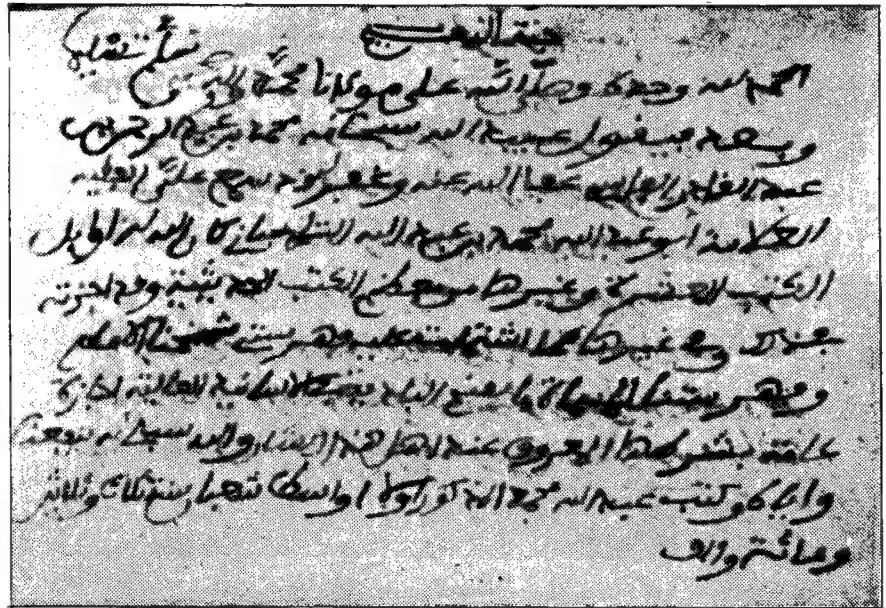 الحمد لله وحده وصلى الله على مولانا محمد وآله
وبعد فيقول عبيد الله سبحانه محمد بن عبد الرحمن بن
عبد القادر الفاسي عفا الله عنه وغفر له قد سمع علي الفقيه
العلامة ابو عبد الله محمد بن عبد الله كان الله له اوايل
الكتب العشرة وغيرها من معظم الكتب الحديثية وقد اجزته
بذلك وبغيرها مما اشتملت عليه فهرستي شيخنا الامام
وفهرستنا المسماة بالاسانيد العالية اجازة
عامة بشرطها المعروف عند اهل هذا الشان والله سبحانه ينفعنا
واياه وكتب عبيد الله محمد المذكور اولا اواسط شعبان سنة ثلاث وثلاثين
ومائة والف